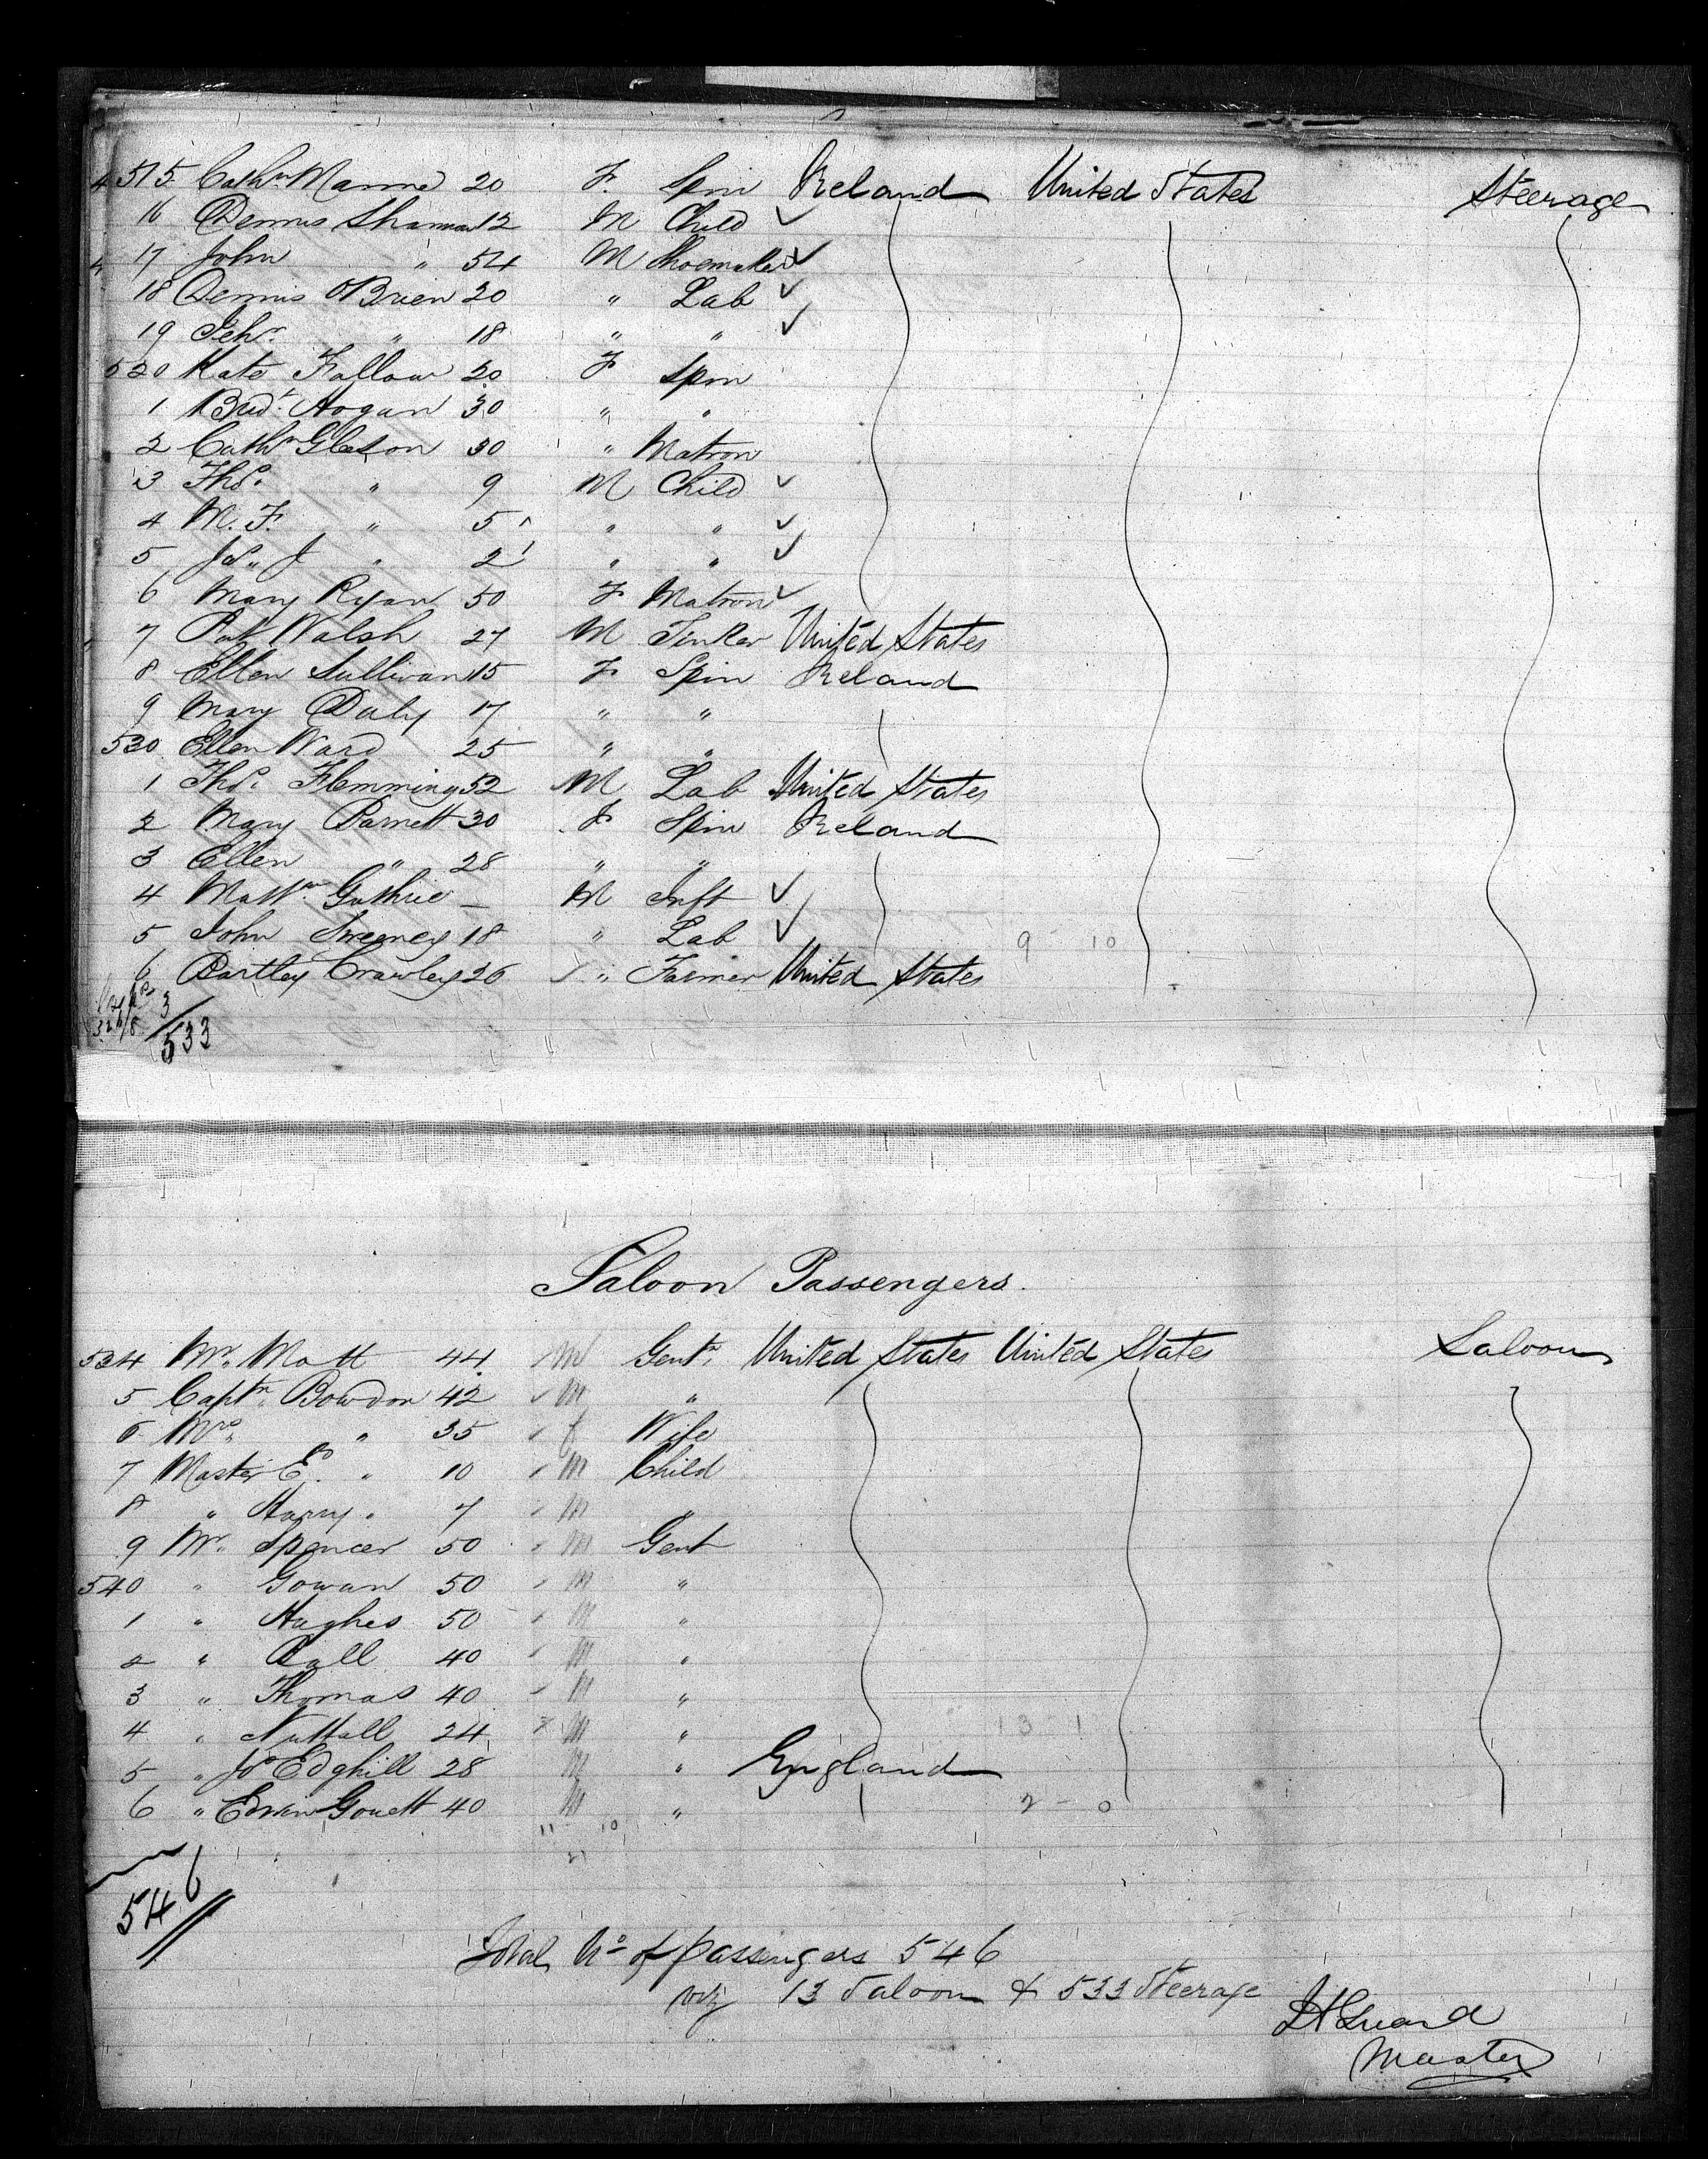 515 Cathn Manne 20 F. Spin Ireland United States Steerage
16 Dennis Shannon 12 M Child ✓
17 John " 54 M Shoemaker ✓
18 Dennis OBrien 20 " Lab ✓
19 Jehr " 18 " " ✓
520 Kate Fallow 20 F Spin
1 Bridt Hogan 30 " "
2 Cathn Gleeson 30 " Matron
3 Thos " 9 M Child ✓
4 M. F. " 5 " " ✓
5 Js J " 2 " " ✓
6 Mary Ryan 50 F Matron ✓
7 Pat Walsh 27 M Tinker United States
8 Ellen Sullivan 15 F Spin Ireland
9 Mary Daly 17 " "
530 Ellen Ward 25 " "
1 Thos Flemming 52 M Lab United States
2 Mary Barnett 30 F Spin Ireland
3 Ellen " 28 " "
4 Matt Guthrie — M Inft ✓
5 John Sweeney 18 " Lab ✓ 9 - 10
6 Bartley Crawley 26 " Farmer United States
3
533
Saloon Passengers.
534 Mr. Mott 44 M Gent. United States United States Saloon
5 Captn Bowdon 42 M "
6 Mrs " 35 f Wife
7 Master Ed " 10 M Child
8 " Harry " 7 M "
9 Mr. Spencer 50 M Gent
540 " Gowan 50 M "
1 " Hughes 50 M "
2 " Ball 40 M "
3 " Thomas 40 M "
4 " Nuttall 24 M " 13 - 1
5 " Js Edghill 28 M " England
6 " Edwin Gouett 40 M " 2 - 0
11 - 10
21
546
Total No of passengers 546
viz 13 Saloon & 533 Steerage
Guard
Master